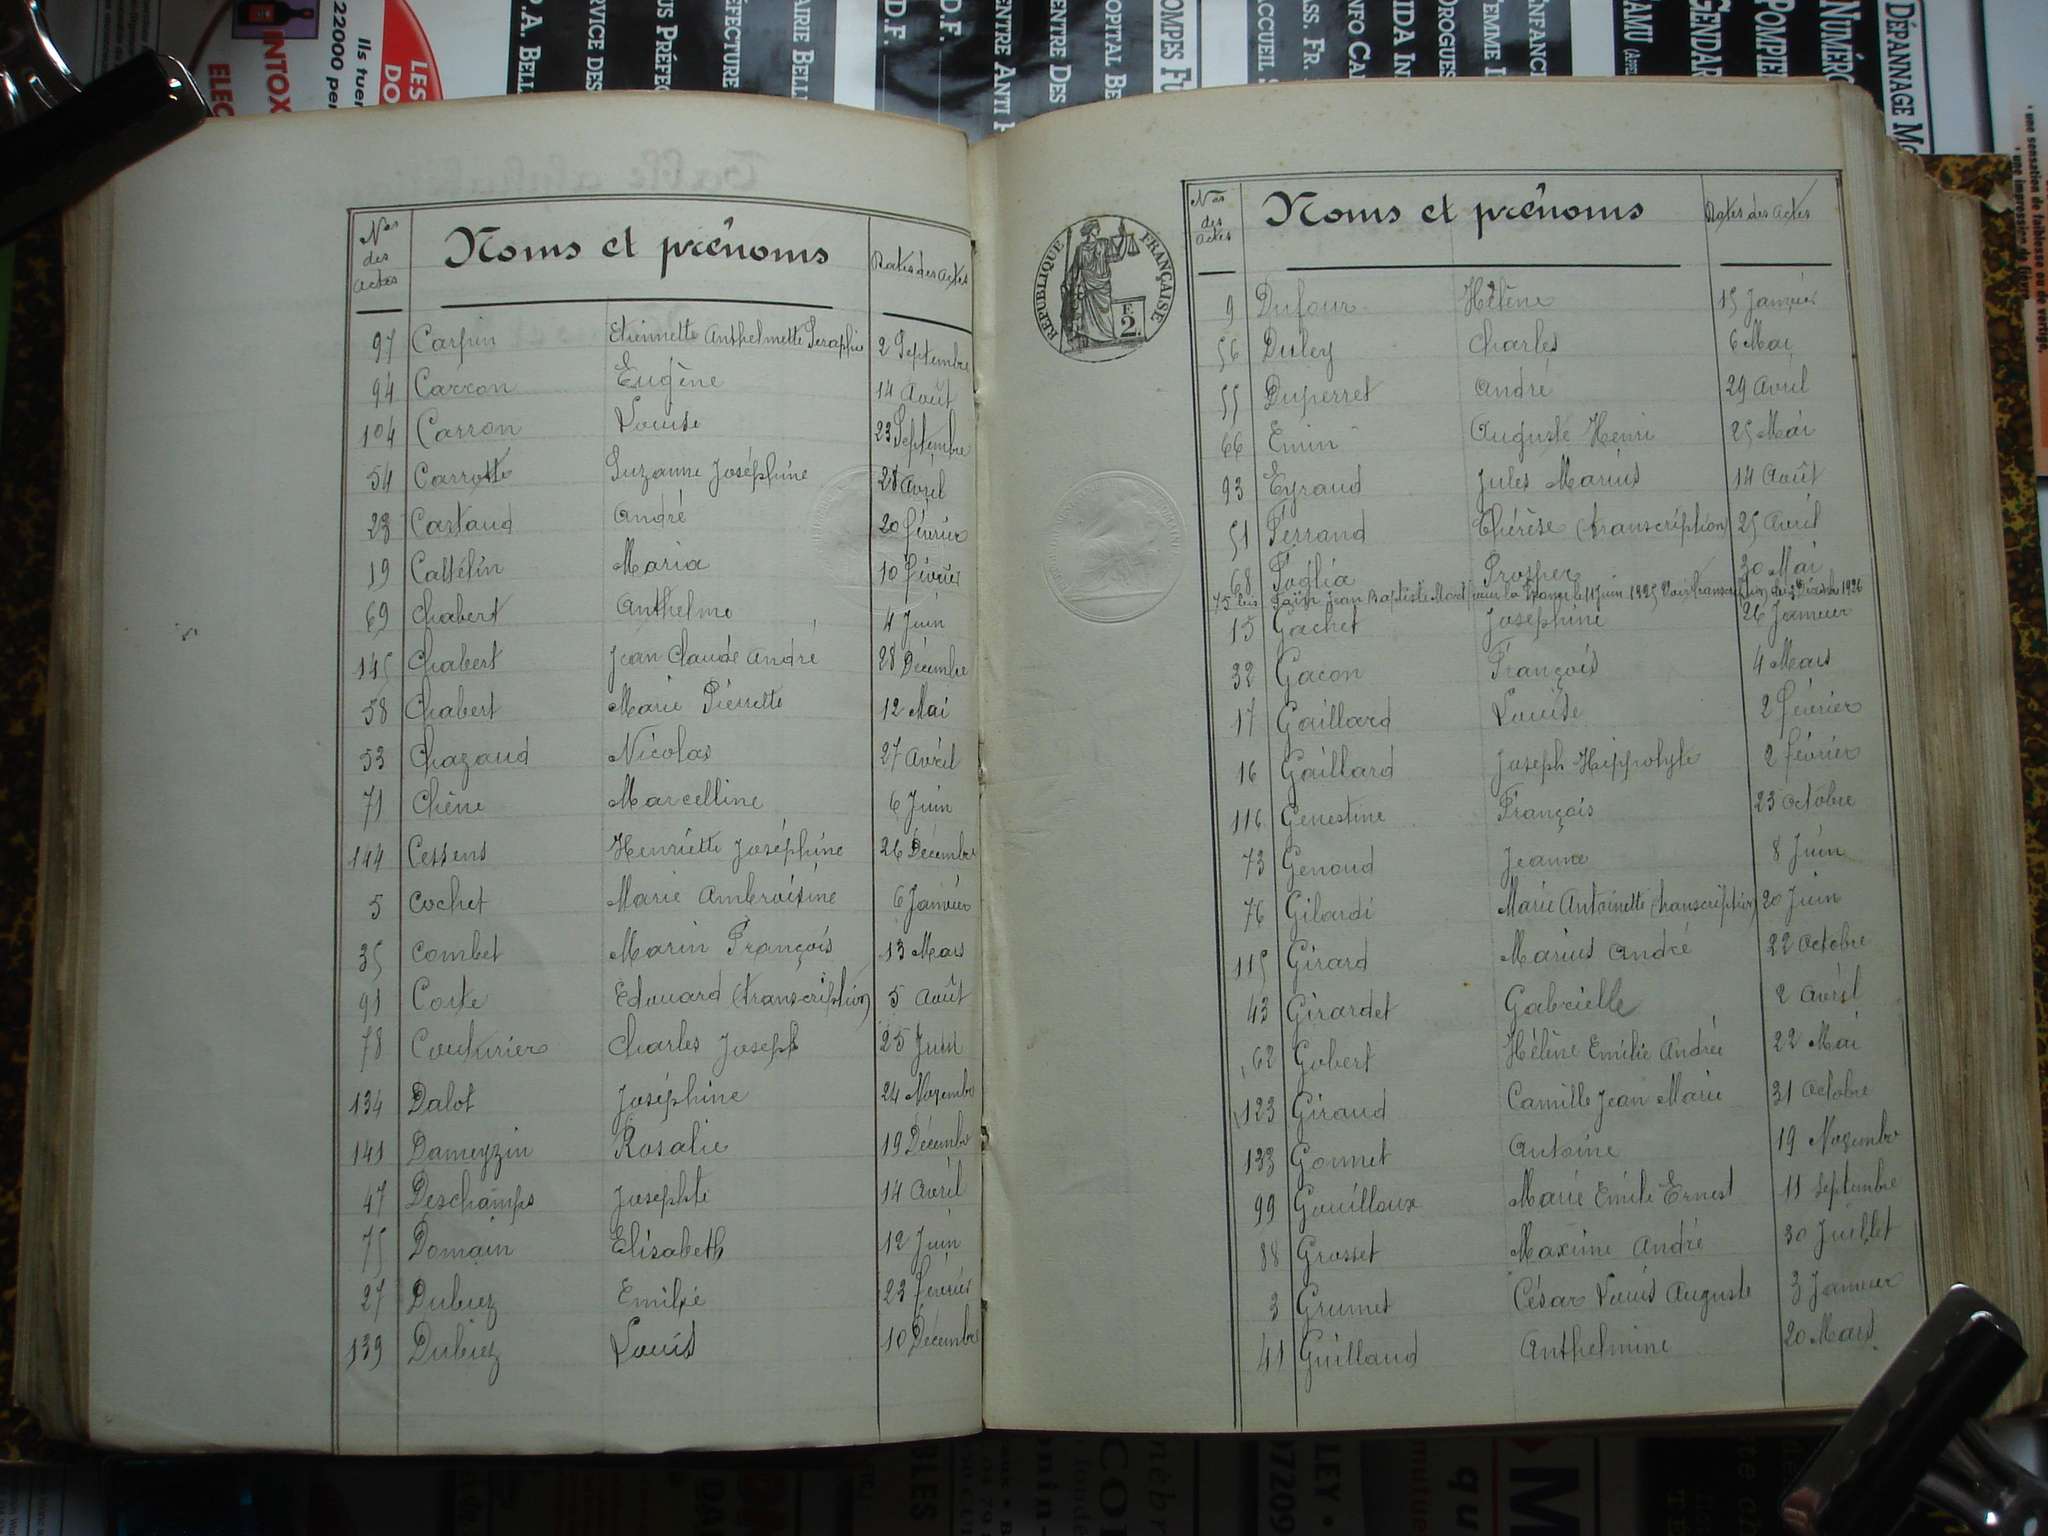 LES
DO
Ils tuer
22000 per
INTOX
ELEC
P.A. BELL
RVICE DES
US PRÉFEC
ÉFECTURE
AIRIE BELL
D.D.F.
D.F.
ENTRE ANTI
ENTRE DES
OPITAL BE
POMPES FU
ACCUEIL S
ASS. FR.
NFO CA
IDA IN
DROGUES
FEMME
ENFANC
SAMU
GENDAR
POMPIE
NUMÉRO
DÉPANNAGE MO
une sensation de faiblesse ou de vertige,
une impression de fièvre
Nos des Actes Noms et prénoms Dates des Actes
97 Carpin Etiennette Anthelmette Séraphie 2 Septembre
94 Carron Eugène 14 Août
104 Carron Louise 23 Septembre
54 Carrotte Suzanne Joséphine 28 Avril
23 Castaud André 20 février
19 Cattélin Maria 10 février
69 Chabert Anthelme 4 Juin
145 Chabert Jean Claude André 28 Décembre
58 Chabert Marie Pierrette 12 Mai
53 Chazaud Nicolas 27 Avril
71 Chêne Marcelline 6 Juin
144 Cessens Henriette Joséphine 26 Décembre
5 Cochet Marie Ambroisine 6 Janvier
35 Combet Marin François 13 Mars
91 Coste Edouard (transcription) 5 Août
78 Couturier Charles Joseph 25 Juin
134 Dalot Joséphine 24 Novembre
141 Dameyzin Rosalie 19 Décembre
47 Deschamps Josephte 14 Avril
75 Domain Elisabeth 12 Juin
27 Dubiez Emilie 23 février
139 Dubiez Louis 10 Décembre
RÉPUBLIQUE FRANÇAISE
E
2
Nos des Actes Noms et prénoms Dates des Actes
9 Dufour Hélène 15 Janvier
56 Duley Charles 6 Mai
55 Duperret André 29 Avril
66 Emin Auguste Henri 25 Mai
93 Eyraud Jules Marius 14 Août
51 Ferrand Thérèse (transcription) 25 Avril
68 Foglia Prosper 30 Mai
75 bis Jean Baptiste Mort pour la France le 11 Juin 1925
15 Gachet Joséphine 26 Janvier
32 Gacon François 4 Mars
17 Gaillard Louise 2 février
16 Gaillard Joseph Hippolyte 2 février
116 Genestine François 23 Octobre
73 Genoud Jeanne 8 Juin
76 Gilardi Marie Antoinette (transcription) 20 Juin
115 Girard Marius André 22 Octobre
43 Girardet Gabrielle 2 Avril
62 Gobert Hélène Emilie Andrée 22 Mai
123 Giraud Camille Jean Marie 31 Octobre
133 Gonnet Antoine 19 Novembre
99 Gouilloux Marie Emile Ernest 11 Septembre
88 Grosset Maxime André 30 Juillet
3 Grumet César Louis Auguste 3 Janvier
41 Guillaud Anthelmine 20 Mars